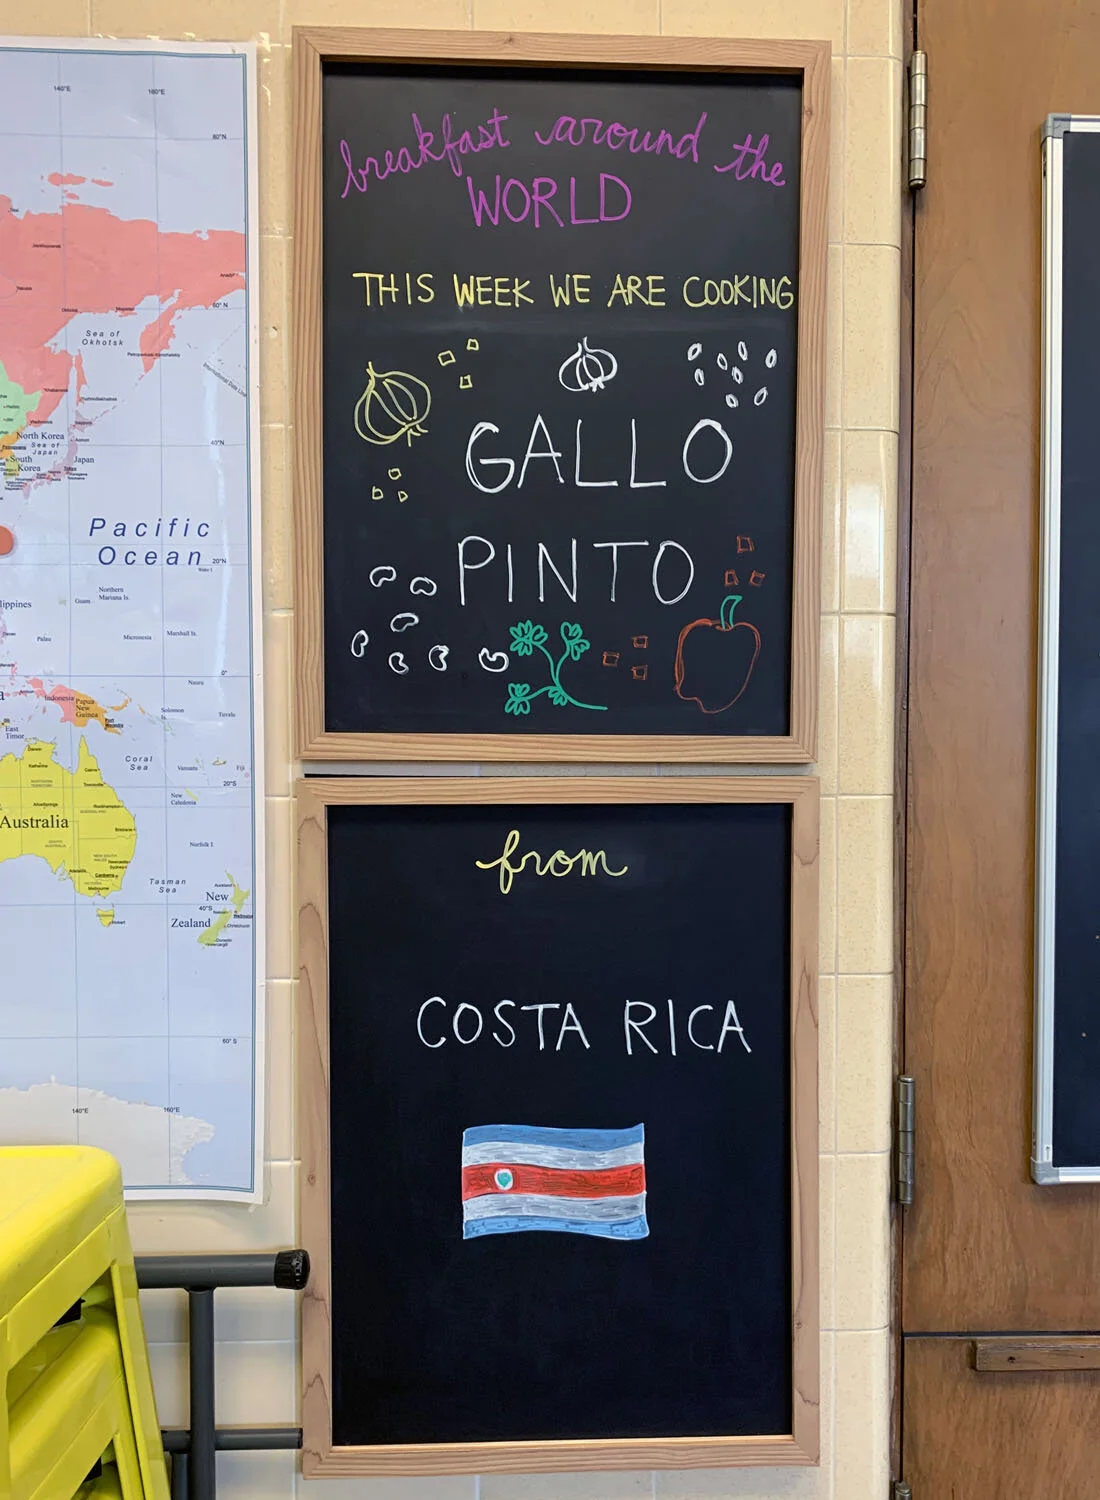 breakfast around the
WORLD
THIS WEEK WE ARE COOKING
GALLO
PINTO
from
COSTA RICA
140°E
160°E
80°N
60° N
Sea of
Okhotsk
International Date Line
North Korea
Sea of
Japan
40°N
South
Korea
Japan
Pacific
Ocean
20°N
Northern
Mariana Is.
Guam
Palau
Micronesia
Marshall Is.
0°
Nauru
Indonesia
Papua
New
Guinea
Solomon
Is.
Tuvalu
East
Timor
Darwin
Coral
Sea
Vanuatu
Fiji
20°S
New
Caledonia
Australia
Brisbane
Norfolk I.
Tasman
Sea
Auckland
New
40°S
Zealand
Hobart
60° S
140°E
160°E